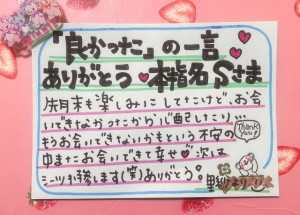 「良かった」の一言
ありがとう♥本指名Sさま
先月末も楽しみにしてたけど、お会
いできなかったから心配したり…
もうお会いできないかもという不安の
中またお会いできて幸せ♥次は
シーツ[...]します(笑)ありがとう。
Thank You!
より